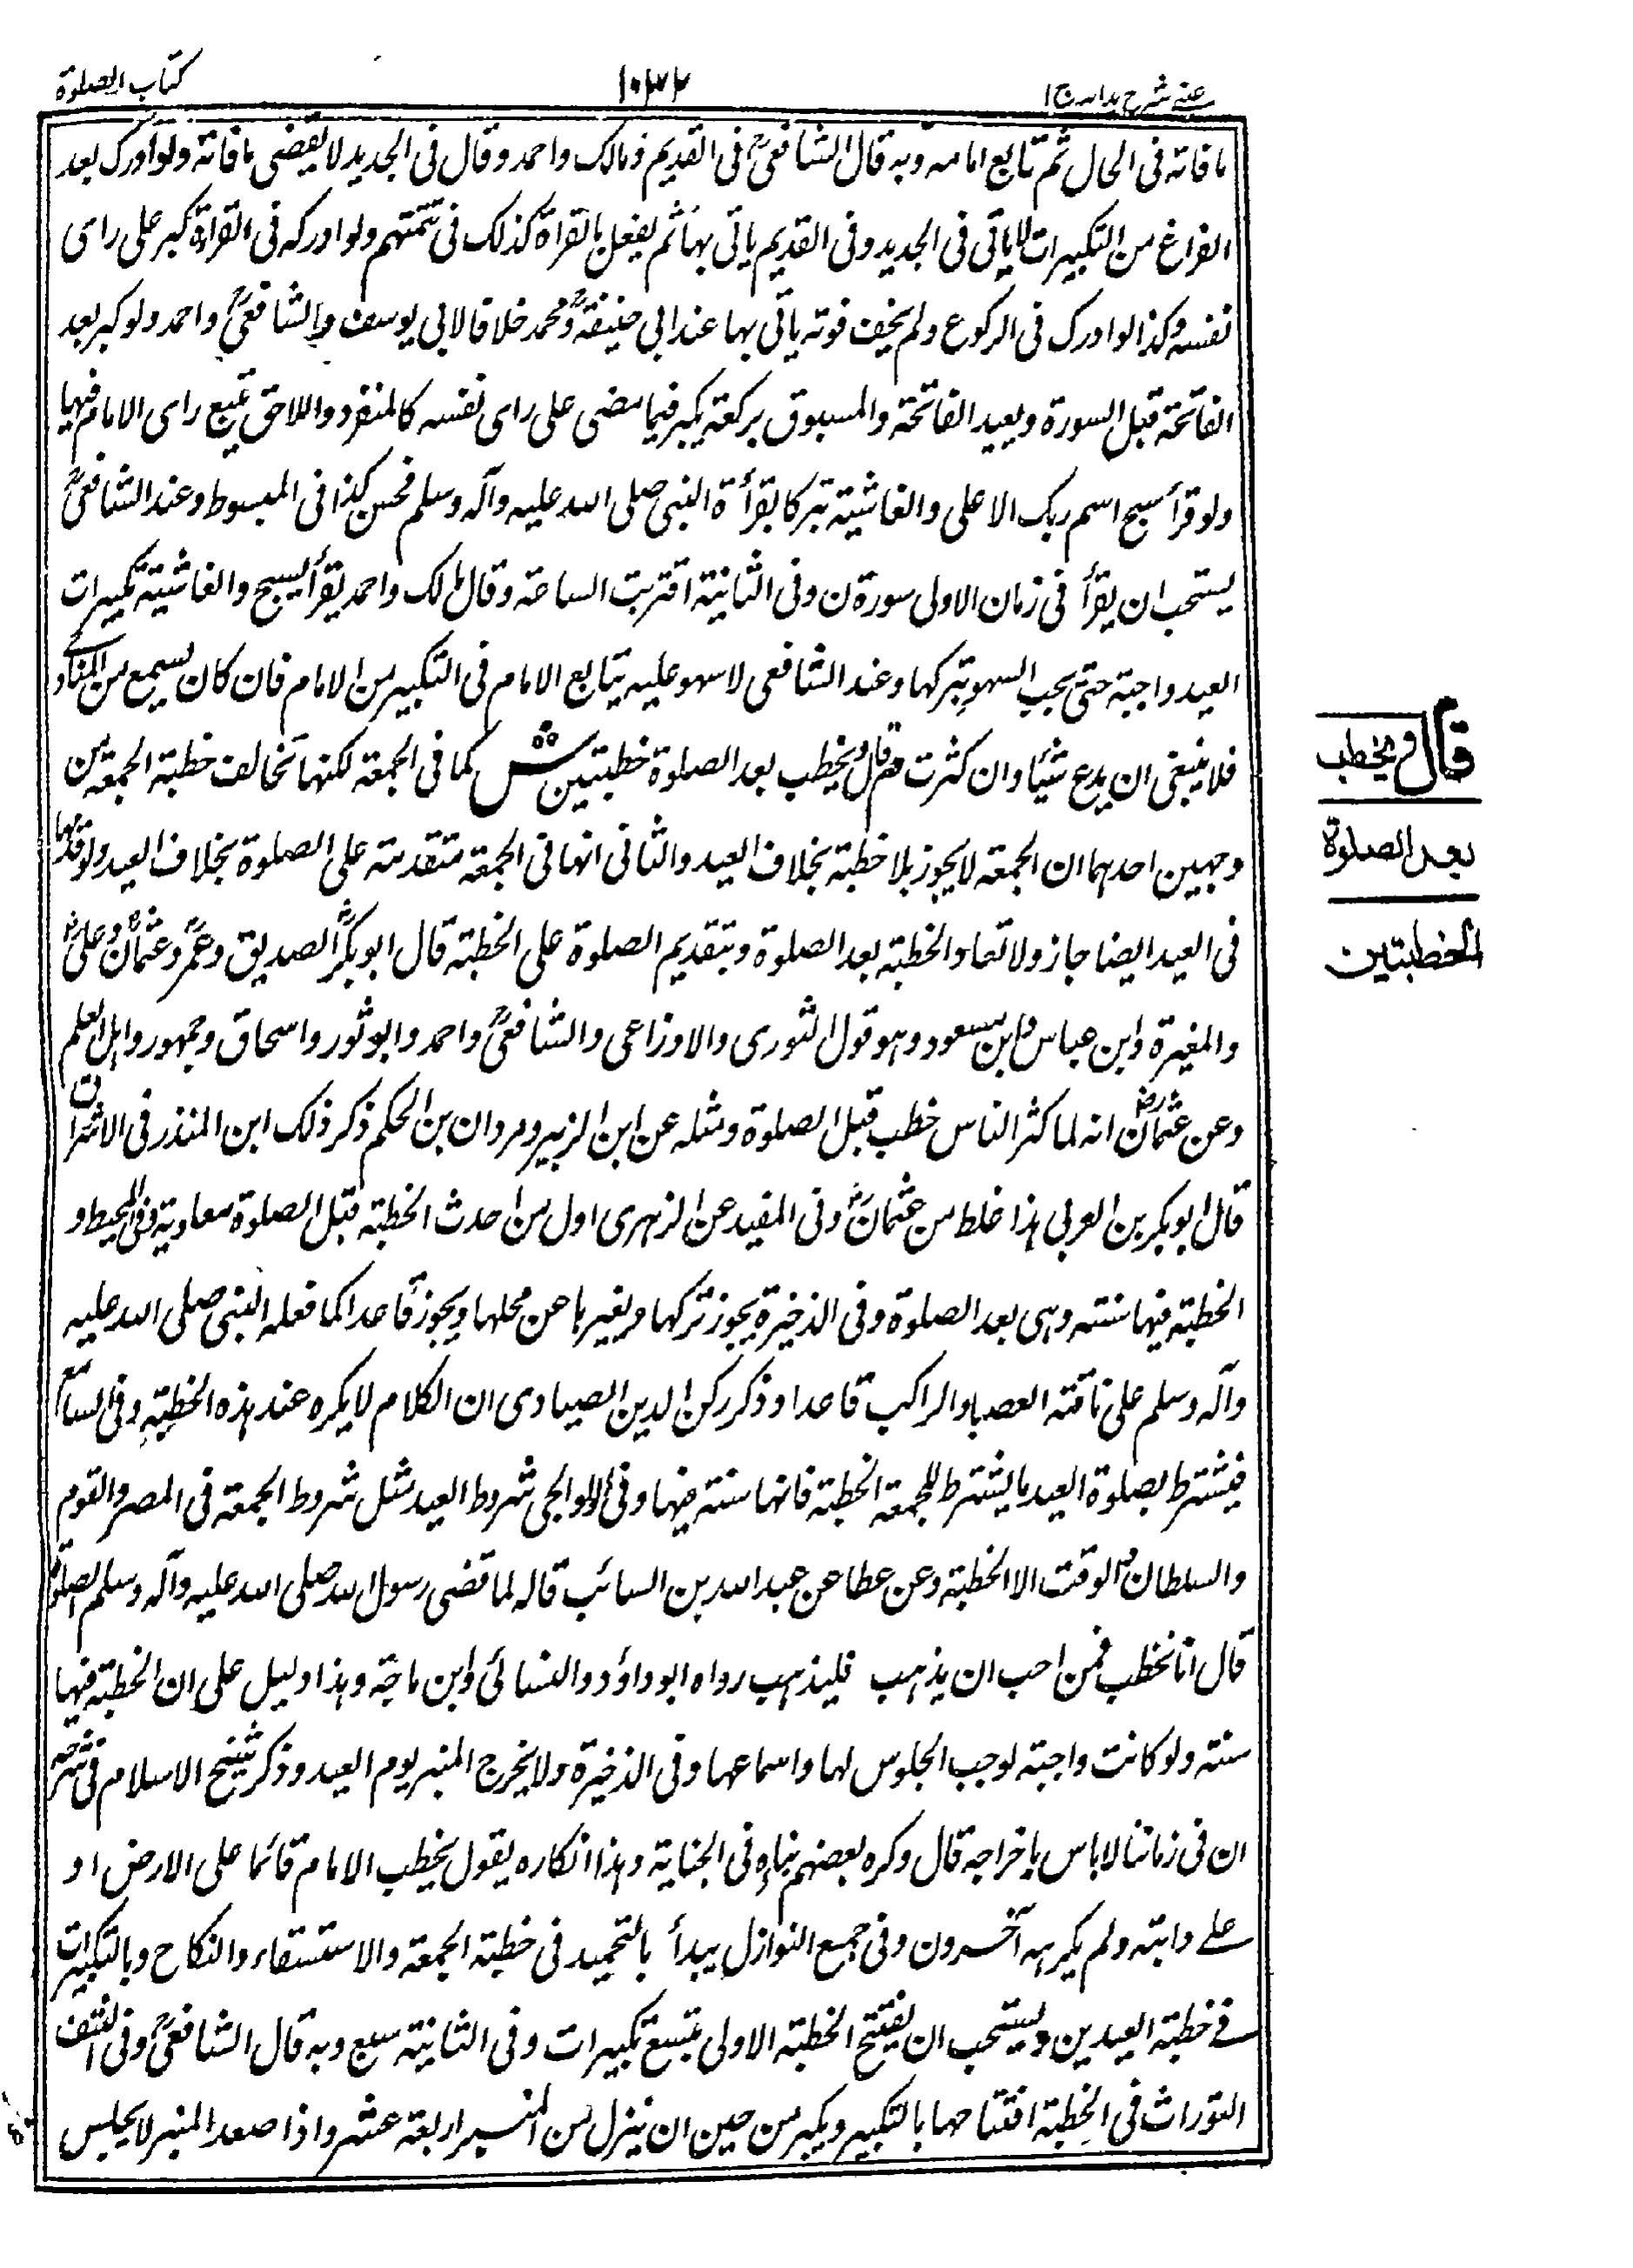 كتاب الصلوة
١٠٣٢
عينے شرح ہدایہ ج ا
ما فاته فى الحال ثم تابع امامه وبه قال الشافعىؒ فى القديم ومالك واحمد وقال فى الجديد لا يقضى ما فاته ولو ادرك بعد
الفراغ من التكبيرات لا ياتى فى الجديد وفى القديم ياتى بها ثم يفعل بالقراة كذلك فى تتمتهم ولو ادركه فى القراءة كبر على راى
نفسه وكذا لو ادرك فى الركوع ولم يخف فوته ياتى بها عند ابى حنيفةؒ ومحمد خلافا لابى يوسف والشافعىؒ واحمد ولو كبر بعد
الفاتحة قبل السورة ويعيد الفاتحة والمسبوق بركعة يكبر فيما مضى على راى نفسه كالمنفرد واللاحق يتبع راى الامام فيها
ولو قرأ سبح اسم ربك الاعلى والغاشية تبركا بقرأة النبى صلى الله عليه وآله وسلم فحسن كذا فى المبسوط وعند الشافعىؒ
يستحب ان يقرأ فى زمان الاولى سورة ن وفى الثانية اقتربت الساعة وقال مالك واحمد يقرأ بسبح والغاشية تكبيرات
العيد واجبة حتى يجب السهو بتركها وعند الشافعى لا سهو عليه يتابع الامام فى التكبير من الامام فان كان يسمع من المنادے
فلا ينبغى ان يدع شيئا وان كثرت م قال ويخطب بعد الصلوة خطبتين ش كما فى الجمعة لكنها تخالف خطبة الجمعة من
وجهين احدهما ان الجمعة لا يجوز بلا خطبة بخلاف العيد والثانى انها فى الجمعة متقدمة على الصلوة بخلاف العيد ولو قدمها
فى العيد ايضا جاز ولا تعاد الخطبة بعد الصلوة وبتقديم الصلوة على الخطبة قال ابو بكرؓ الصديق وعمرؓ وعثمانؓ وعلىؓ
والمغيرة وابن عباس وابن مسعود وهو قول الثورى والاوزاعى والشافعىؒ واحمد وابو ثور واسحاق وجمهور واهل العلم
وعن عثمانؓ انه لما كثر الناس خطب قبل الصلوة ومثله عن ابن الزبير ومروان بن الحكم ذكر ذلك ابن المنذر فى الاشراق
قال ابو بكر بن العربى هذا غلط من عثمانؓ وفى المفيد عن الزهرى اول من احدث الخطبة قبل الصلوة معاوية وفى المحيط و
الخطبة فيها سنته وهى بعد الصلوة وفى الذخيرة يجوز تركها وبغيرها عن محلها ويجوز قاعدا كما فعله النبى صلى الله عليه
وآله وسلم على ناقته العصبا والراكب قاعدا وذكر ركن الدين الصيادى ان الكلام لا يكره عند هذه الخطبة وفى
فيشترط بصلوة العيد ما يشترط للجمعة الخطبة فانها سنته فيها وفى الولوالجى شروط العيد مثل شروط الجمعة فى المصر والقوم
والسلطان والوقت الا الخطبة وعن عطا عن عبد الله بن السائب قاله لما قضى رسول الله صلى الله عليه وآله وسلم الصلوة
قال انا نخطب فمن احب ان يذهب فليذهب رواه ابو داؤد والنسائى وابن ماجة وهذا دليل على ان الخطبة فيها
سنته ولو كانت واجبته لوجب الجلوس لها واسماعها وفى الذخيرة ولا يخرج المنبر يوم العيد وذكر شيخ الاسلام فى شرحه
ان فى زماننا لا باس باخراجه قال وكره بعضهم بناءه فى الجنابة وهذا انكاره يقول يخطب الامام قائما على الارض او
علے دابته ولم يكرهه آخرون وفى جميع النوازل يبدأ بالتحميد فى خطبة الجمعة والاستسقاء والنكاح وبالتكبيرات
فے خطبة العيدين ويستحب ان يفتتح الخطبة الاولى بتسع تكبيرات وفى الثانية سبع وبه قال الشافعىؒ وفى النتف
التوراث فى الخطبة افتتاحها بالتكبير ويكبر من حين ان ينزل من المنبر اربعة عشر واذا صعد المنبر لا يجلس
قال ويخطب
بعد الصلوة
الخطبتين